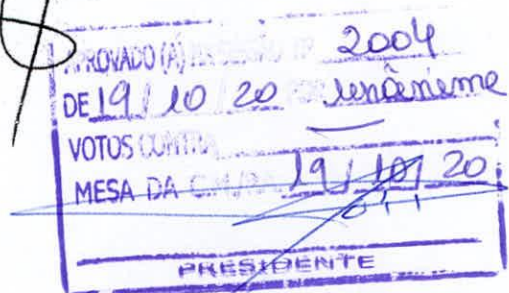 APROVADO (A) NA SESSÃO Nº 2004
DE 19 / 10 20 POR unânime
VOTOS CONTRA —
MESA DA C.M. 19 / 10 / 20
PRESIDENTE